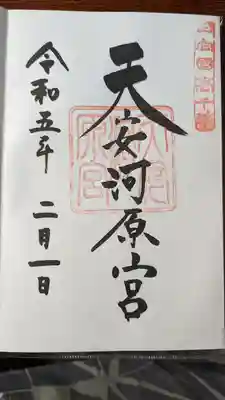 天安河原宮
令和五年
二月一日